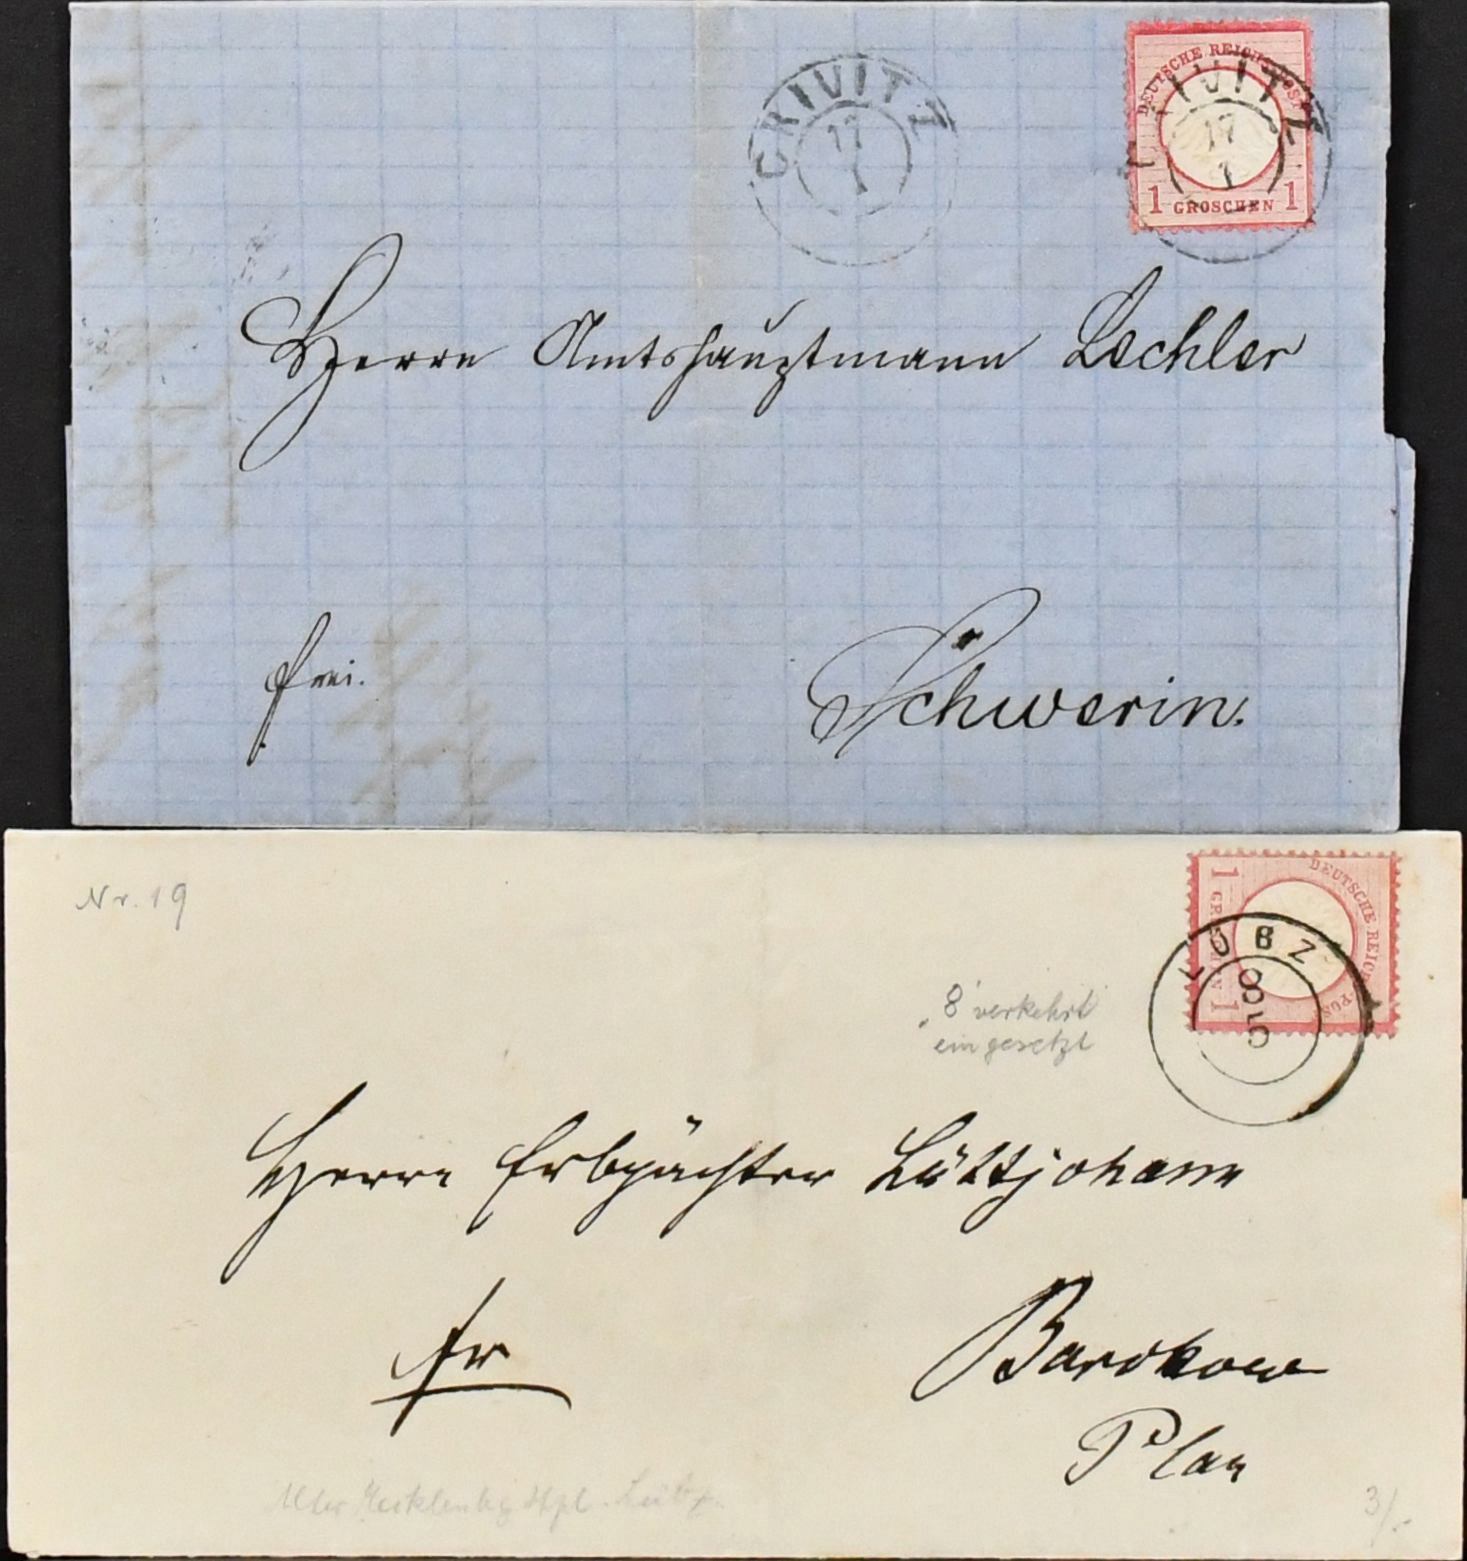 CRIVITZ
17
1
DEUTSCHE REICHS-POST
1 GROSCHEN 1
CRIVITZ
17
1
Herrn Amtshauptmann Lechler
frei.
Schwerin.
Nr. 19
DEUTSCHE REICHS-POST
1 GROSCHEN 1
LÜBZ
8
5
"8" verkehrt
eingesetzt
Herrn Erbpächter Lüttjohann
fr
Barckow
Plau
Alter Mecklenbg Stpl. Lübz.
3/-